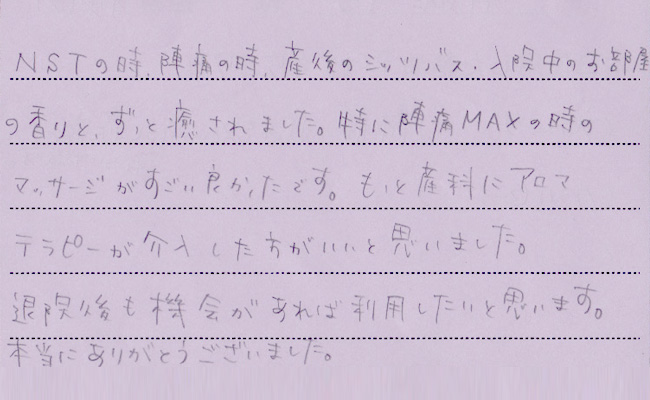 NSTの時、陣痛の時、産後のシッツバス、入院中のお部屋
の香りと、ずっと癒されました。特に陣痛MAXの時の
マッサージがすごい良かったです。もっと産科にアロマ
テラピーが介入した方がいいと思いました。
退院後も機会があれば利用したいと思います。
本当にありがとうございました。